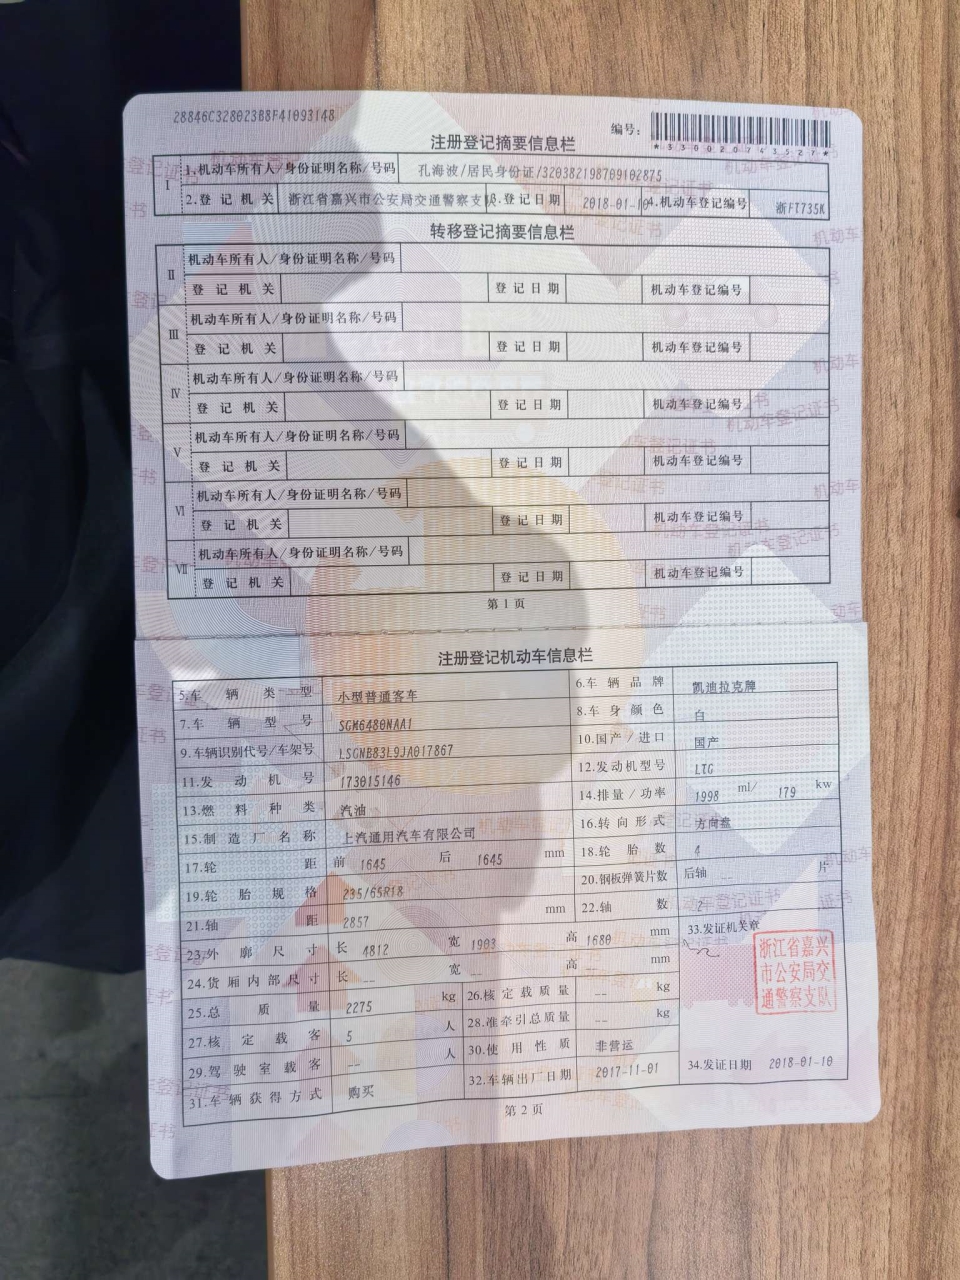 28846C328023B8F41093148
编号：
*330020743527*
注册登记摘要信息栏
I 1.机动车所有人/身份证明名称/号码 孔海波/居民身份证/320382198709102875
2.登记机关 浙江省嘉兴市公安局交通警察支队 3.登记日期 2018-01-10 4.机动车登记编号 浙FT735K
转移登记摘要信息栏
II 机动车所有人/身份证明名称/号码
登记机关 登记日期 机动车登记编号
III 机动车所有人/身份证明名称/号码
登记机关 登记日期 机动车登记编号
IV 机动车所有人/身份证明名称/号码
登记机关 登记日期 机动车登记编号
V 机动车所有人/身份证明名称/号码
登记机关 登记日期 机动车登记编号
VI 机动车所有人/身份证明名称/号码
登记机关 登记日期 机动车登记编号
VII 机动车所有人/身份证明名称/号码
登记机关 登记日期 机动车登记编号
第1页
注册登记机动车信息栏
5.车辆类型 小型普通客车 6.车辆品牌 凯迪拉克牌
7.车辆型号 SGM6480NAA1 8.车身颜色 白
9.车辆识别代号/车架号 LSGNB83L9JA017867 10.国产/进口 国产
11.发动机号 173015146 12.发动机型号 LTG
13.燃料种类 汽油 14.排量/功率 1998 ml/ 179 kw
15.制造厂名称 上汽通用汽车有限公司 16.转向形式 方向盘
17.轮距 前 1645 后 1645 mm 18.轮胎数 4
19.轮胎规格 235/65R18 20.钢板弹簧片数 后轴 -- 片
21.轴距 2857 mm 22.轴数 2
23.外廓尺寸 长 4812 宽 1903 高 1680 mm 33.发证机关章
24.货厢内部尺寸 长 -- 宽 -- 高 mm
25.总质量 2275 kg 26.核定载质量 -- kg
27.核定载客 5 人 28.准牵引总质量 -- kg
29.驾驶室载客 -- 人 30.使用性质 非营运
31.车辆获得方式 购买 32.车辆出厂日期 2017-11-01 34.发证日期 2018-01-10
浙江省嘉兴
市公安局交
通警察支队
第2页